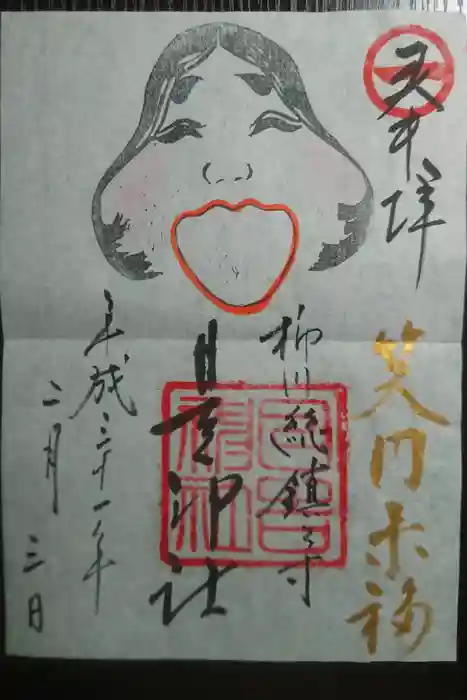 奉拝
笑門来福
柳川総鎮守
日吉神社
平成三十一年
二月
三日
日吉神社